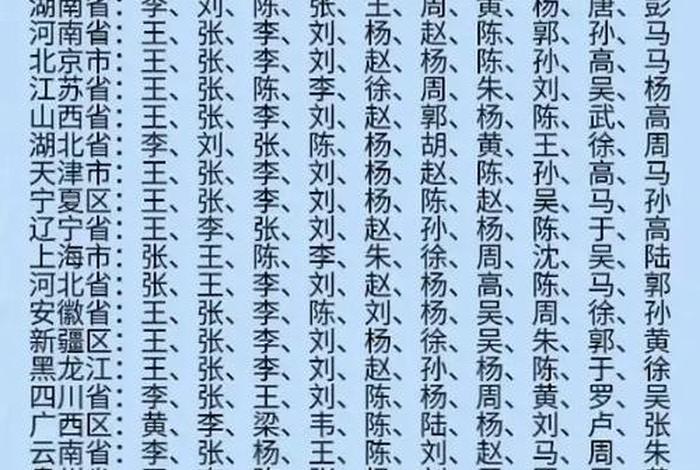 湖南省：李、刘、陈、张、王、周、黄、杨、唐、彭
河南省：王、张、李、刘、杨、赵、陈、郭、孙、马
北京市：王、张、李、刘、赵、杨、陈、孙、高、马
江苏省：王、张、陈、李、徐、周、朱、刘、吴、杨
山西省：王、张、李、刘、赵、郭、杨、陈、武、高
湖北省：李、刘、张、陈、杨、胡、黄、王、徐、周
天津市：王、张、李、刘、杨、赵、陈、孙、高、马
宁夏区：王、张、李、刘、杨、陈、赵、吴、马、孙
辽宁省：王、李、张、刘、赵、孙、杨、陈、于、高
上海市：张、王、陈、李、朱、徐、周、沈、吴、陆
河北省：张、王、李、刘、赵、杨、高、陈、马、郭
安徽省：王、张、李、陈、刘、杨、吴、周、徐、孙
新疆区：王、张、李、刘、杨、徐、吴、朱、郭、黄
黑龙江：王、张、李、刘、赵、孙、杨、陈、于、徐
四川省：李、张、王、刘、陈、杨、周、黄、罗、吴
广西区：黄、李、梁、韦、陈、陆、杨、刘、卢、张
云南省：李、张、杨、王、陈、刘、赵、马、周、朱